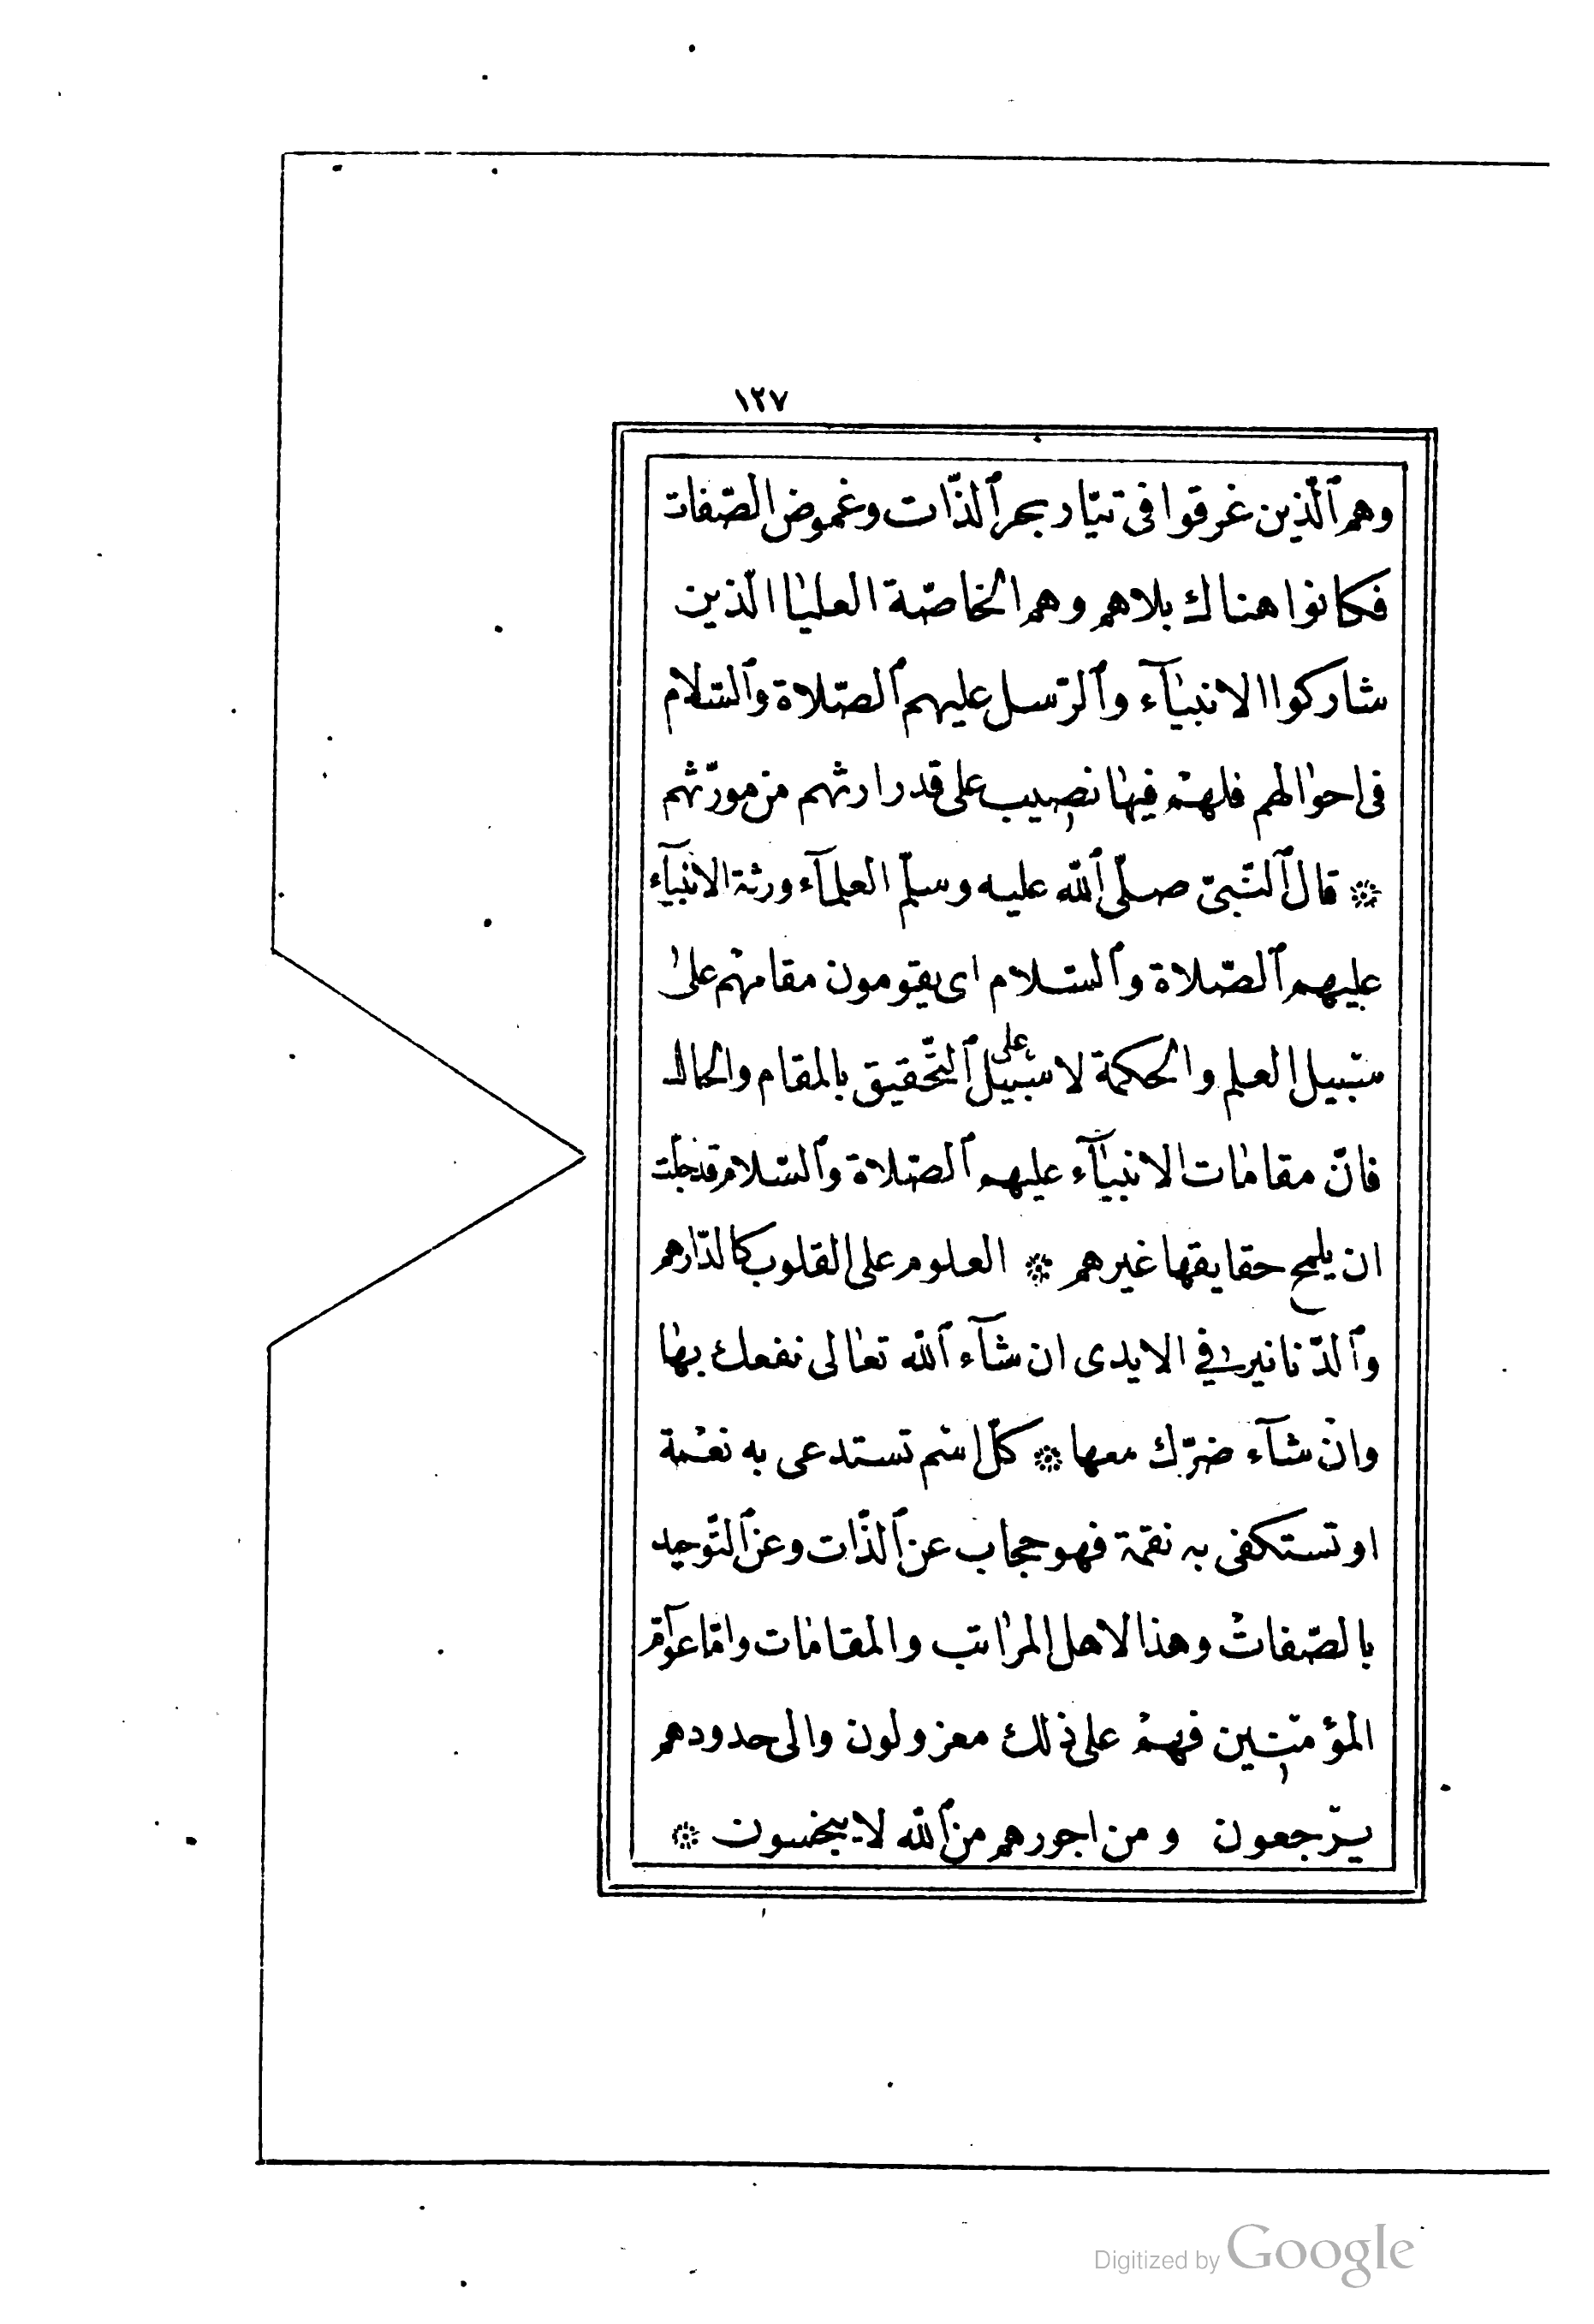 ١٢٧
وهم ٱلّذين غرقوا فى تيّار بحر ٱلذّات وغموض الصّفات
فكانوا هناك بلاهم وهم الخاصّة العليا الّذين
شاركوا الانبيآء وٱلرّسل عليهم ٱلصّلاة وٱلسّلام
فى احوالهم فلهم فيها نصيب على قدر ارثهم من مورّثهم
۞ قال ٱلنّبىّ صلّى ٱللّه عليه وسلّم العلمآء ورثة الانبيآء
عليهم ٱلصّلاة وٱلسّلام اى يقومون مقامهم على
سبيل العلم والحكمة لا على سبيل ٱلتّحقيق بالمقام والحال
فانّ مقامات الانبيآء عليهم ٱلصّلاة وٱلسّلام قد جلّت
ان يلمح حقايقها غيرهم ۞ العلوم على القلوب كالدّارهم
وٱلدّنانير في الايدى ان شآء ٱللّه تعالى نفعك بها
وان شآء ضرّك معها ۞ كلّ اسم تستدعى به نعمة
او تستكفى به نقمة فهو حجاب عن ٱلذّات وعن ٱلتّوحيد
بالصّفات وهذا لاهل المراتب والمقامات وامّا عوآمّ
المؤمنين فهم على ذلك معزولون والى حدودهم
يرجعون ومن اجورهم من ٱللّه لا يبخسون ۞
Digitized by Google